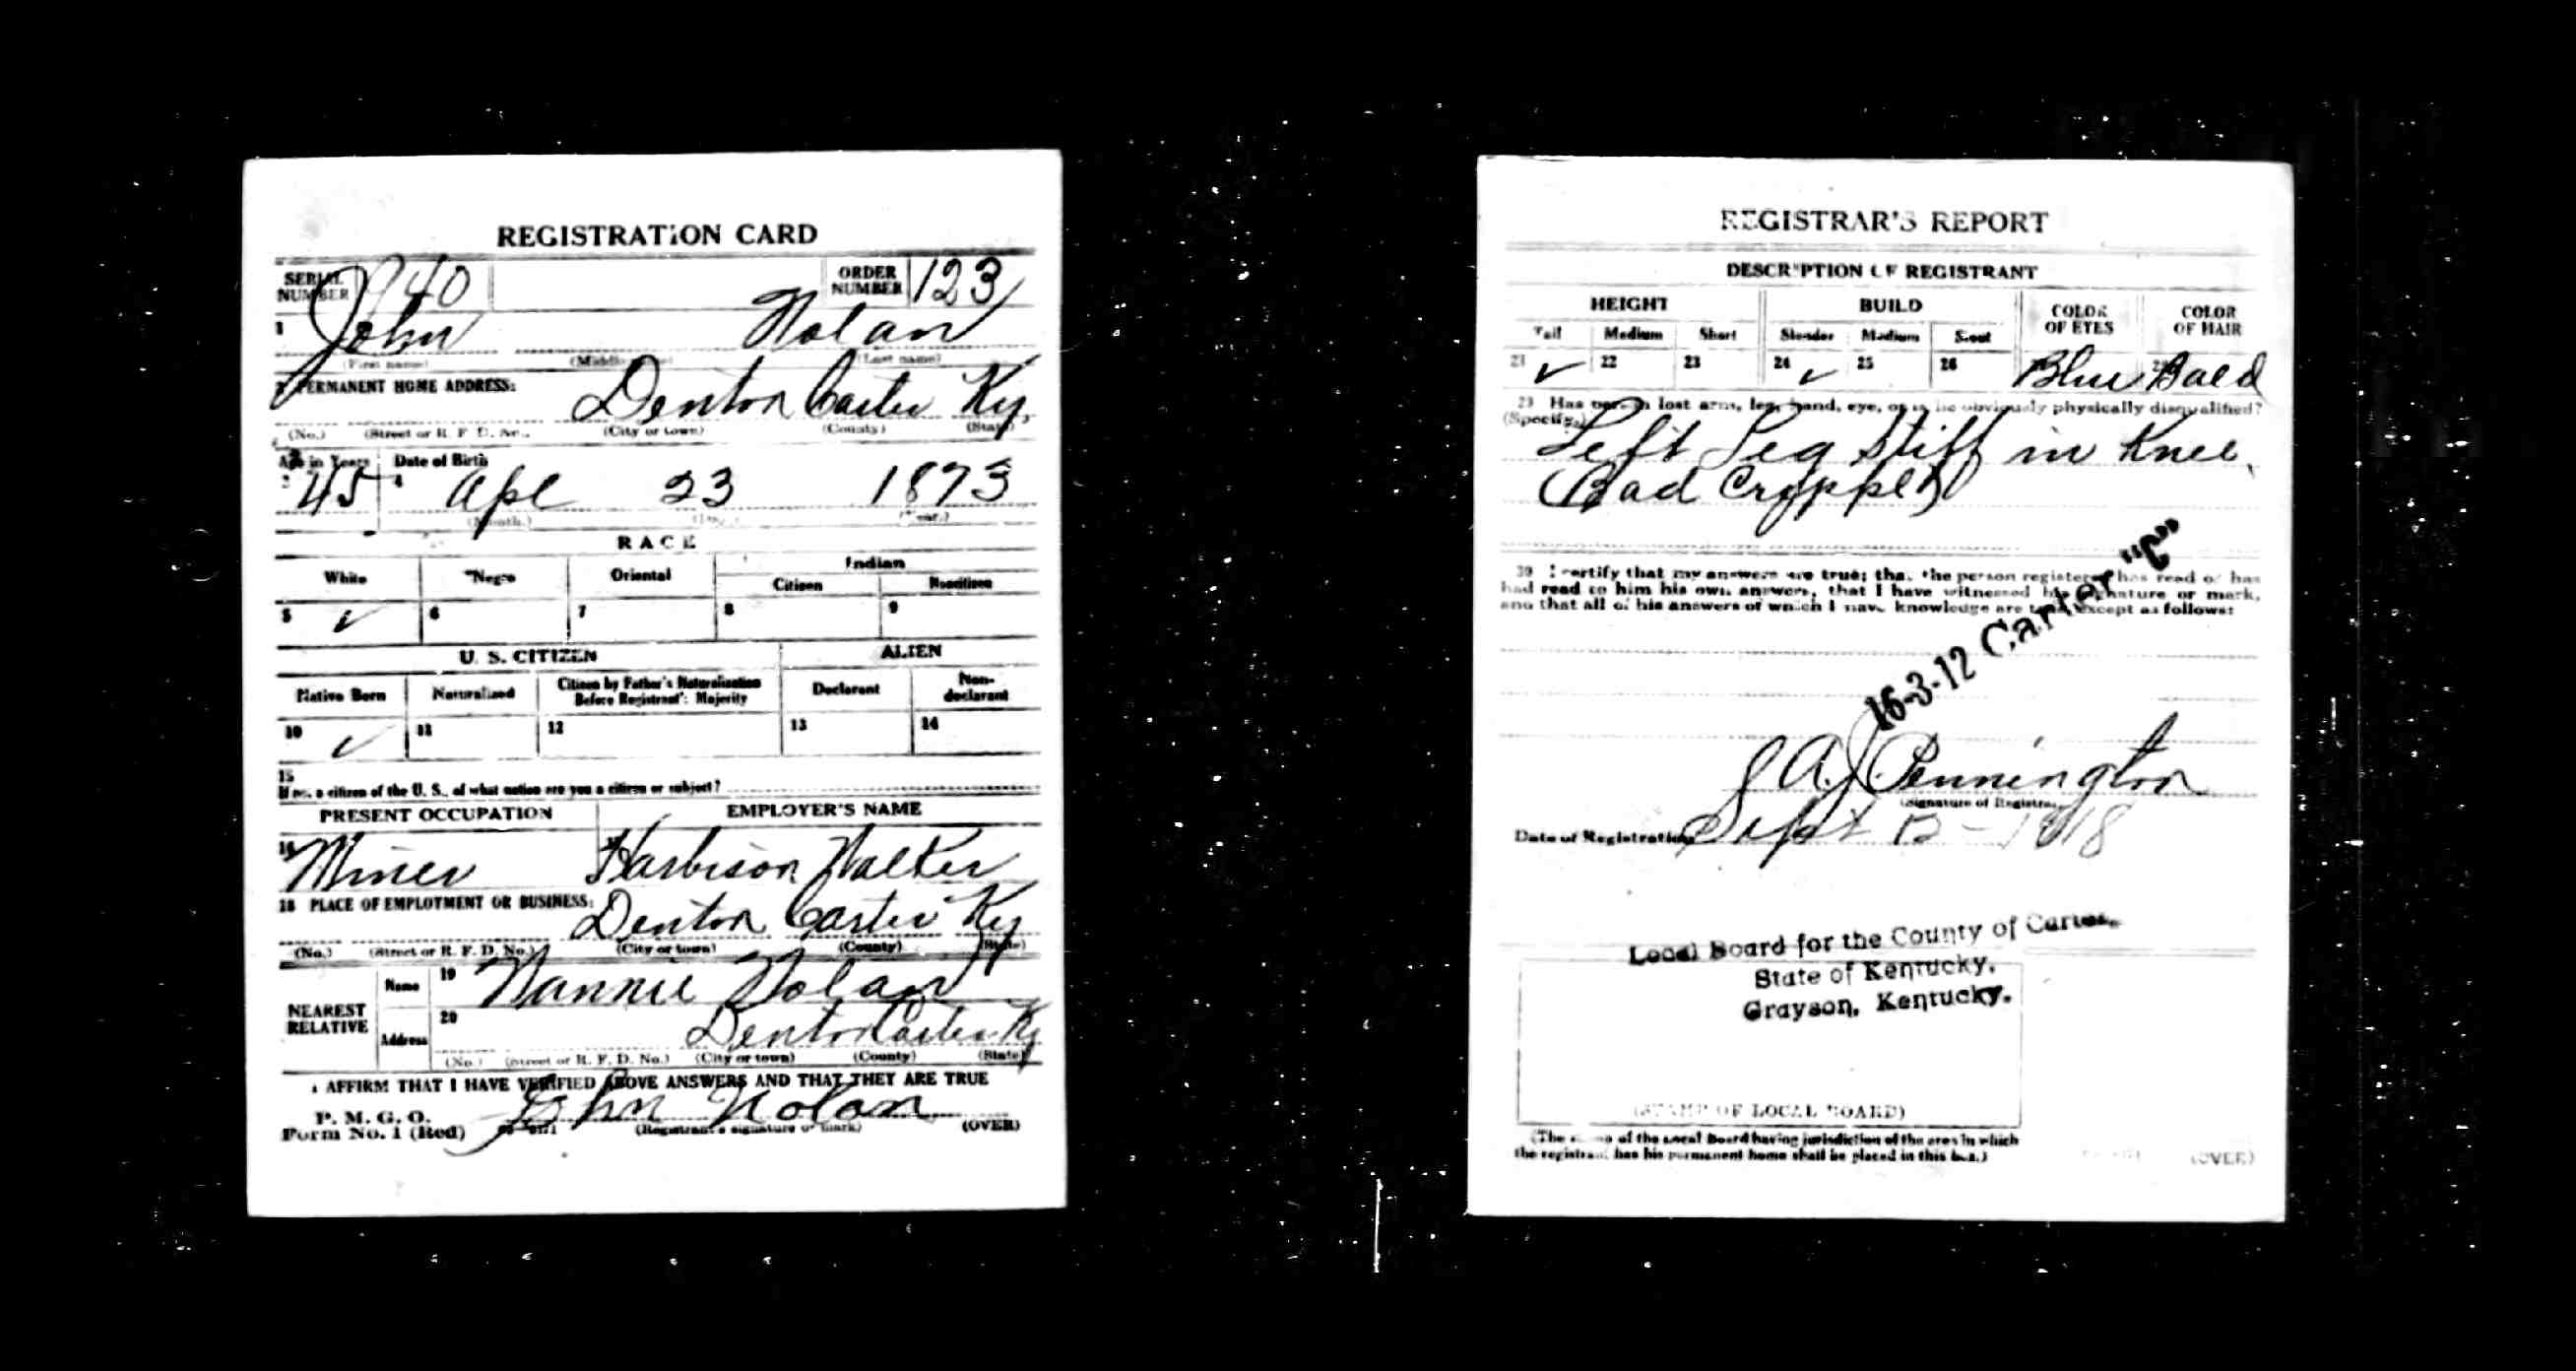 REGISTRATION CARD
SERIAL NUMBER 940 ORDER NUMBER 123
1 John Nolan
(First name) (Middle name) (Last name)
2 PERMANENT HOME ADDRESS:
Denton Carter Ky.
(No.) (Street or R. F. D. No.) (City or town) (County) (State)
Age in Years Date of Birth
3 45 4 Apl 23 1873
(Month.) (Day.) (Year.)
RACE
White Negro Oriental Indian
Citizen Noncitizen
5 ✓ 6 7 8 9
U. S. CITIZEN ALIEN
Native Born Naturalized Citizen by Father's Naturalization Before Registrant's Majority Declarant Non-declarant
10 ✓ 11 12 13 14
15
If not a citizen of the U. S., of what nation are you a citizen or subject?
PRESENT OCCUPATION EMPLOYER'S NAME
16 Miner Harbison Walker
18 PLACE OF EMPLOYMENT OR BUSINESS:
Denton Carter Ky
(No.) (Street or R. F. D. No.) (City or town) (County) (State)
NEAREST RELATIVE
Name 19 Nannie Nolan
Address 20 Denton Carter Ky
(No.) (Street or R. F. D. No.) (City or town) (County) (State)
I AFFIRM THAT I HAVE VERIFIED ABOVE ANSWERS AND THAT THEY ARE TRUE
P. M. G. O.
Form No. 1 (Red) John Nolan
(Registrant's signature or mark) (OVER)
REGISTRAR'S REPORT
DESCRIPTION OF REGISTRANT
HEIGHT BUILD COLOR OF EYES COLOR OF HAIR
Tall Medium Short Slender Medium Stout
21 ✓ 22 23 24 ✓ 25 26 Blue Bald
29 Has person lost arm, leg, hand, eye, or is he obviously physically disqualified?
(Specify.)
Left Leg Stiff in Knee,
Bad Cripple
30 I certify that my answers are true; that the person registered has read or has
had read to him his own answers, that I have witnessed his signature or mark,
and that all of his answers of which I have knowledge are true, except as follows:
16-3-12 Carter "C"
J A J Pennington
(Signature of Registrar)
Date of Registration Sept 12 - 1918
Local Board for the County of Carter,
State of Kentucky,
Grayson, Kentucky.
(STAMP OF LOCAL BOARD)
(The stamp of the Local Board having jurisdiction of the area in which
the registrant has his permanent home shall be placed in this box.)
(OVER)